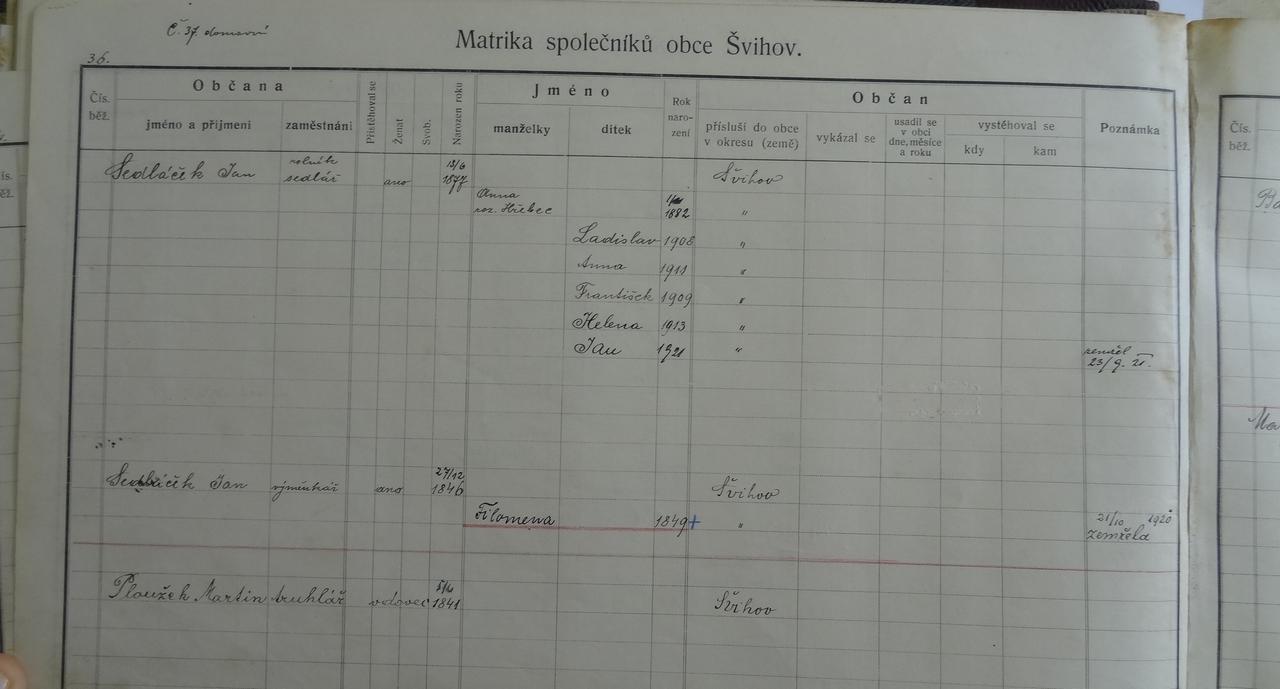 Č. 37 domovní
36.
Matrika společníků obce Švihov.
Občana
Jméno
Občan
Čís. běž.
jméno a příjmení
zaměstnání
Přistěhoval se
Ženat
Svob.
Narozen roku
manželky
dítek
Rok naro- zení
přísluší do obce v okresu (země)
vykázal se
usadil se v obci dne, měsíce a roku
vystěhoval se
kdy
kam
Poznámka
Sedláček Jan rolník sedlář ano 13/6 1877 Švihov
Anna roz. Hřebec 1882 "
Ladislav 1908 "
Anna 1911 "
František 1909 "
Helena 1913 "
Jan 1921 " 23/9. 21.
Sedláček Jan výměnkář ano 27/12 1846 Švihov
Filomena 1849 + " 21/10 1920 zemřela
Ploužek Martin truhlář vdovec 1841 Švihov
Čís. běž.